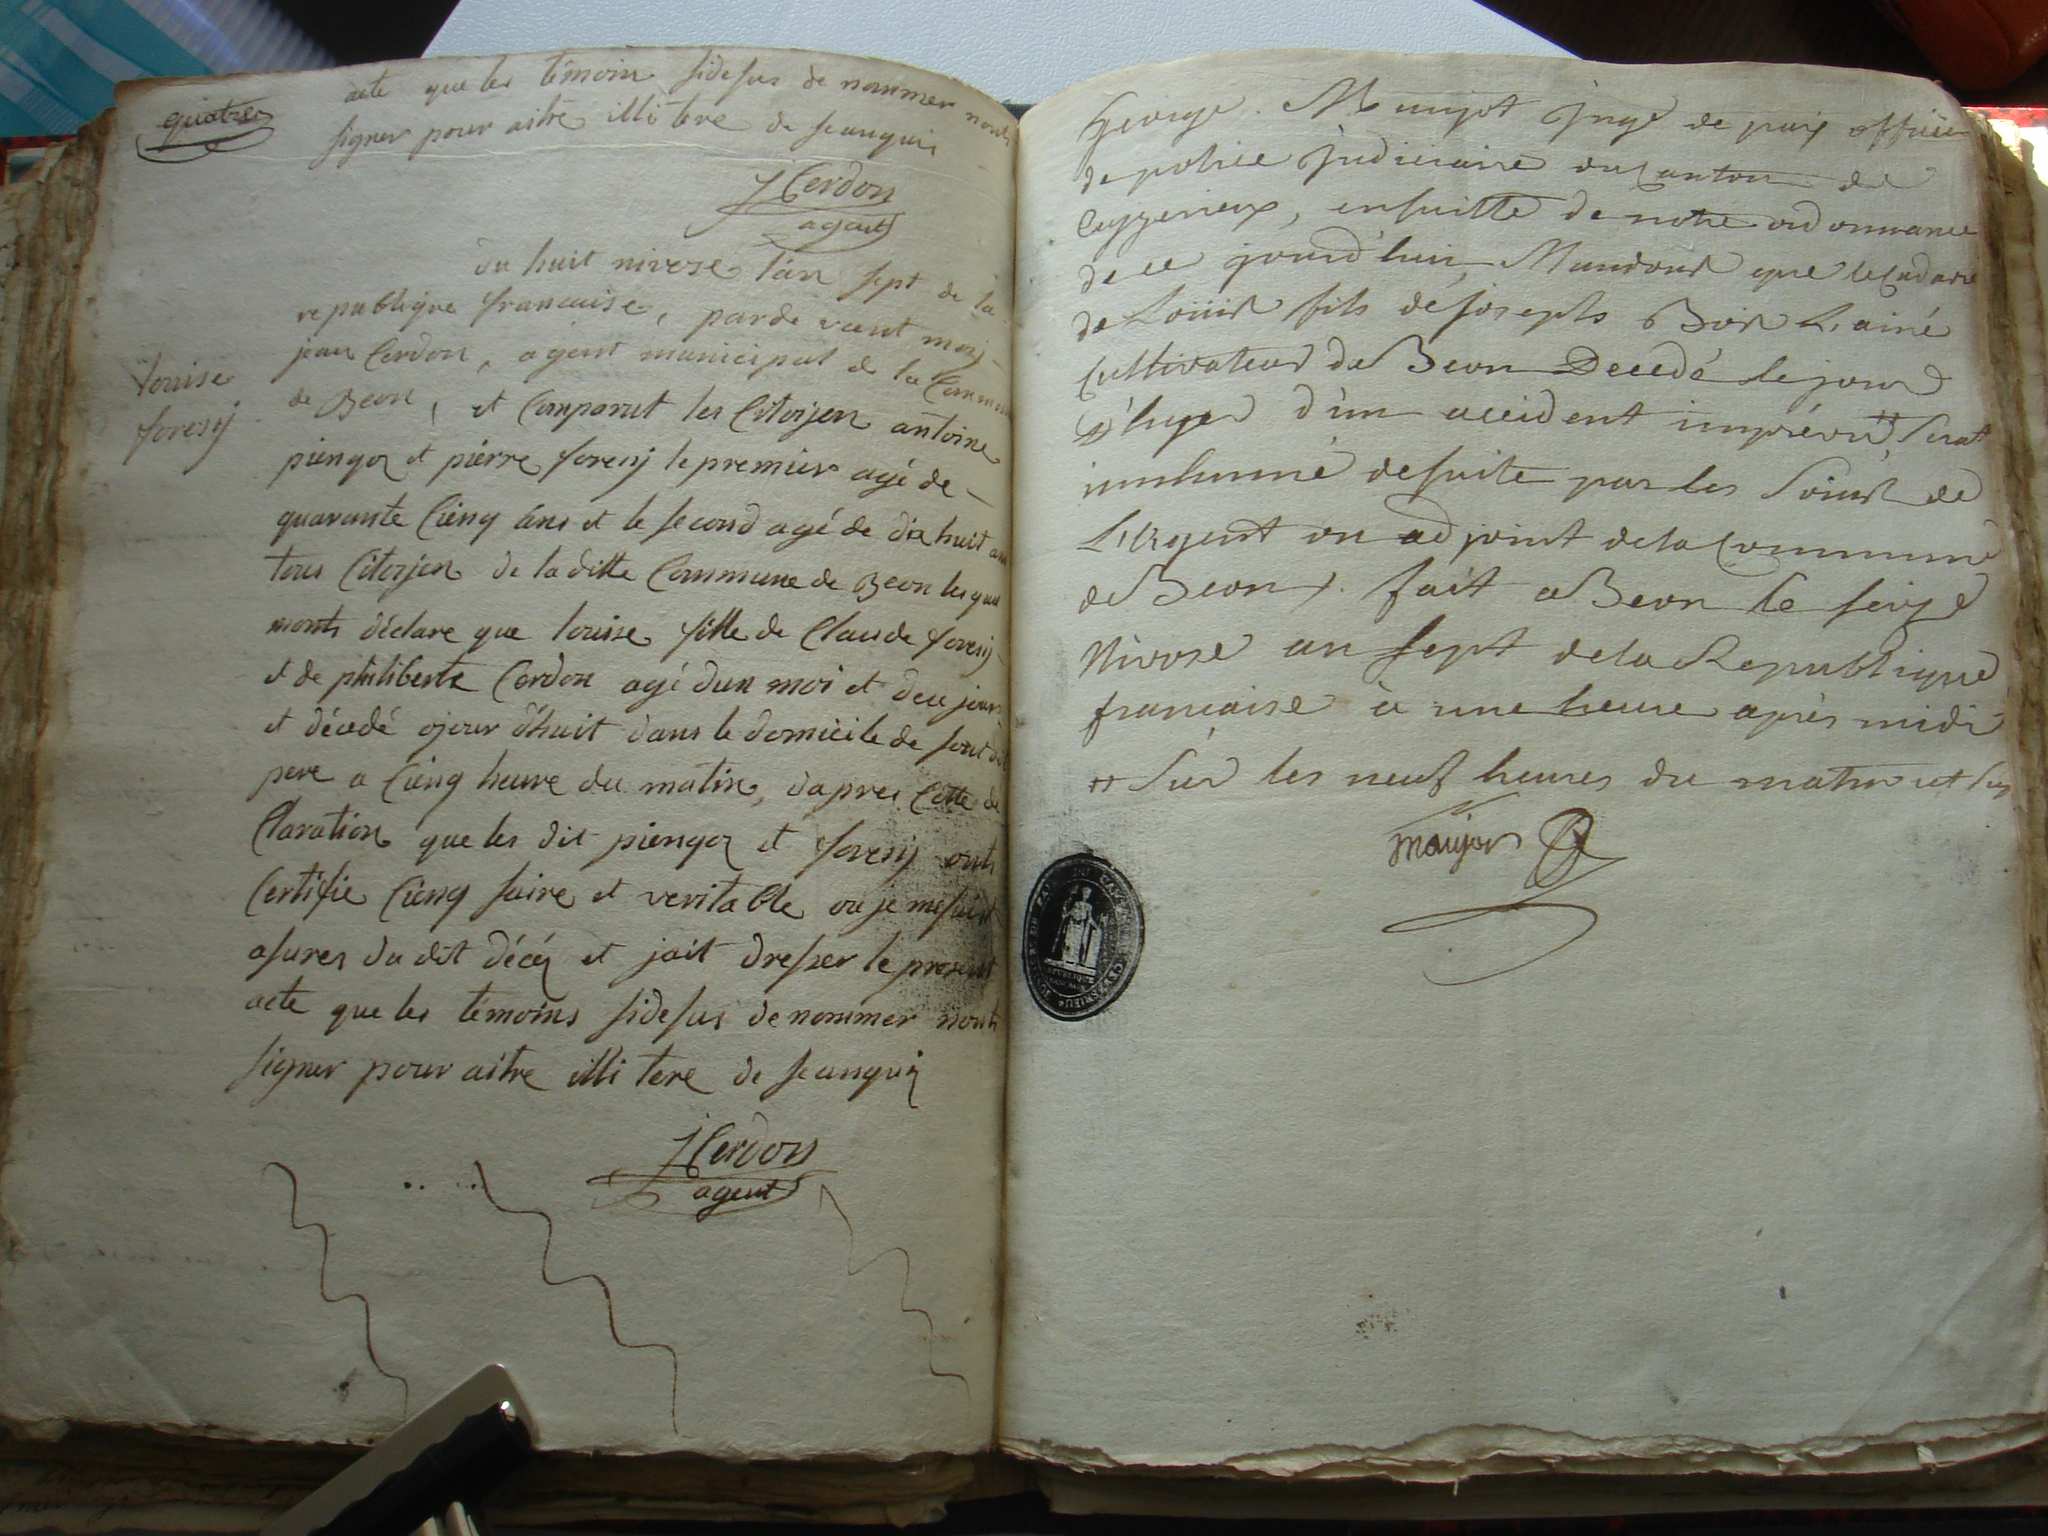 quatre
acte que les témoin sidesus de nommer nonts
signer pour aitre illi tere de seanquis
J Cerdon
agent
du huit nivose l'an sept de la
republique francaise, parde vaent moij
jean Cerdon, agent municipal de la Commune
louise
foresij
de Beon, et Comparut les Citoijen antoine
piengoz et pierre foresij le premier agé de
quarante Cienq ans et le second agé de dix huit ans
tous Citoijen de la ditte Commune de Beon les quel
monts déclare que louise fille de Claude foresij
et de philiberte Cerdon agé dun moi et deu jours
et décedé ojour d'huit dans le domicile de sont dit
pere a Cienq heure du matin, dapres Cette de
Claration que les dit piengoz et foresij onts
Certifie Cienq saire et veritable ou je me suit
asures du dit décéz et jait dresser le present
acte que les témoins sidesus de nommer nonts
signer pour aitre illi tere de seanquis
J Cerdon
agent
George. Maujot Juge de paix officier
de police Judiciaire du Canton de
Ceyzerieux, ensuitte de notre ordonnance
de ce jourd'huir Mandons que le Cadavre
de Loüis fils de joseph Bois L'ainé
Cultivateur de Beon Decedé le jour
d'hyer d'un accident imprévu # serat
inhumé desuite par les soins de
L'Agent ou adjoint de la Commune
de Beon. fait a Beon le seize
Nivose an sept de la Republique
francaise à une heure après midi
# sur les neuf heures du matin et sus
Maujot